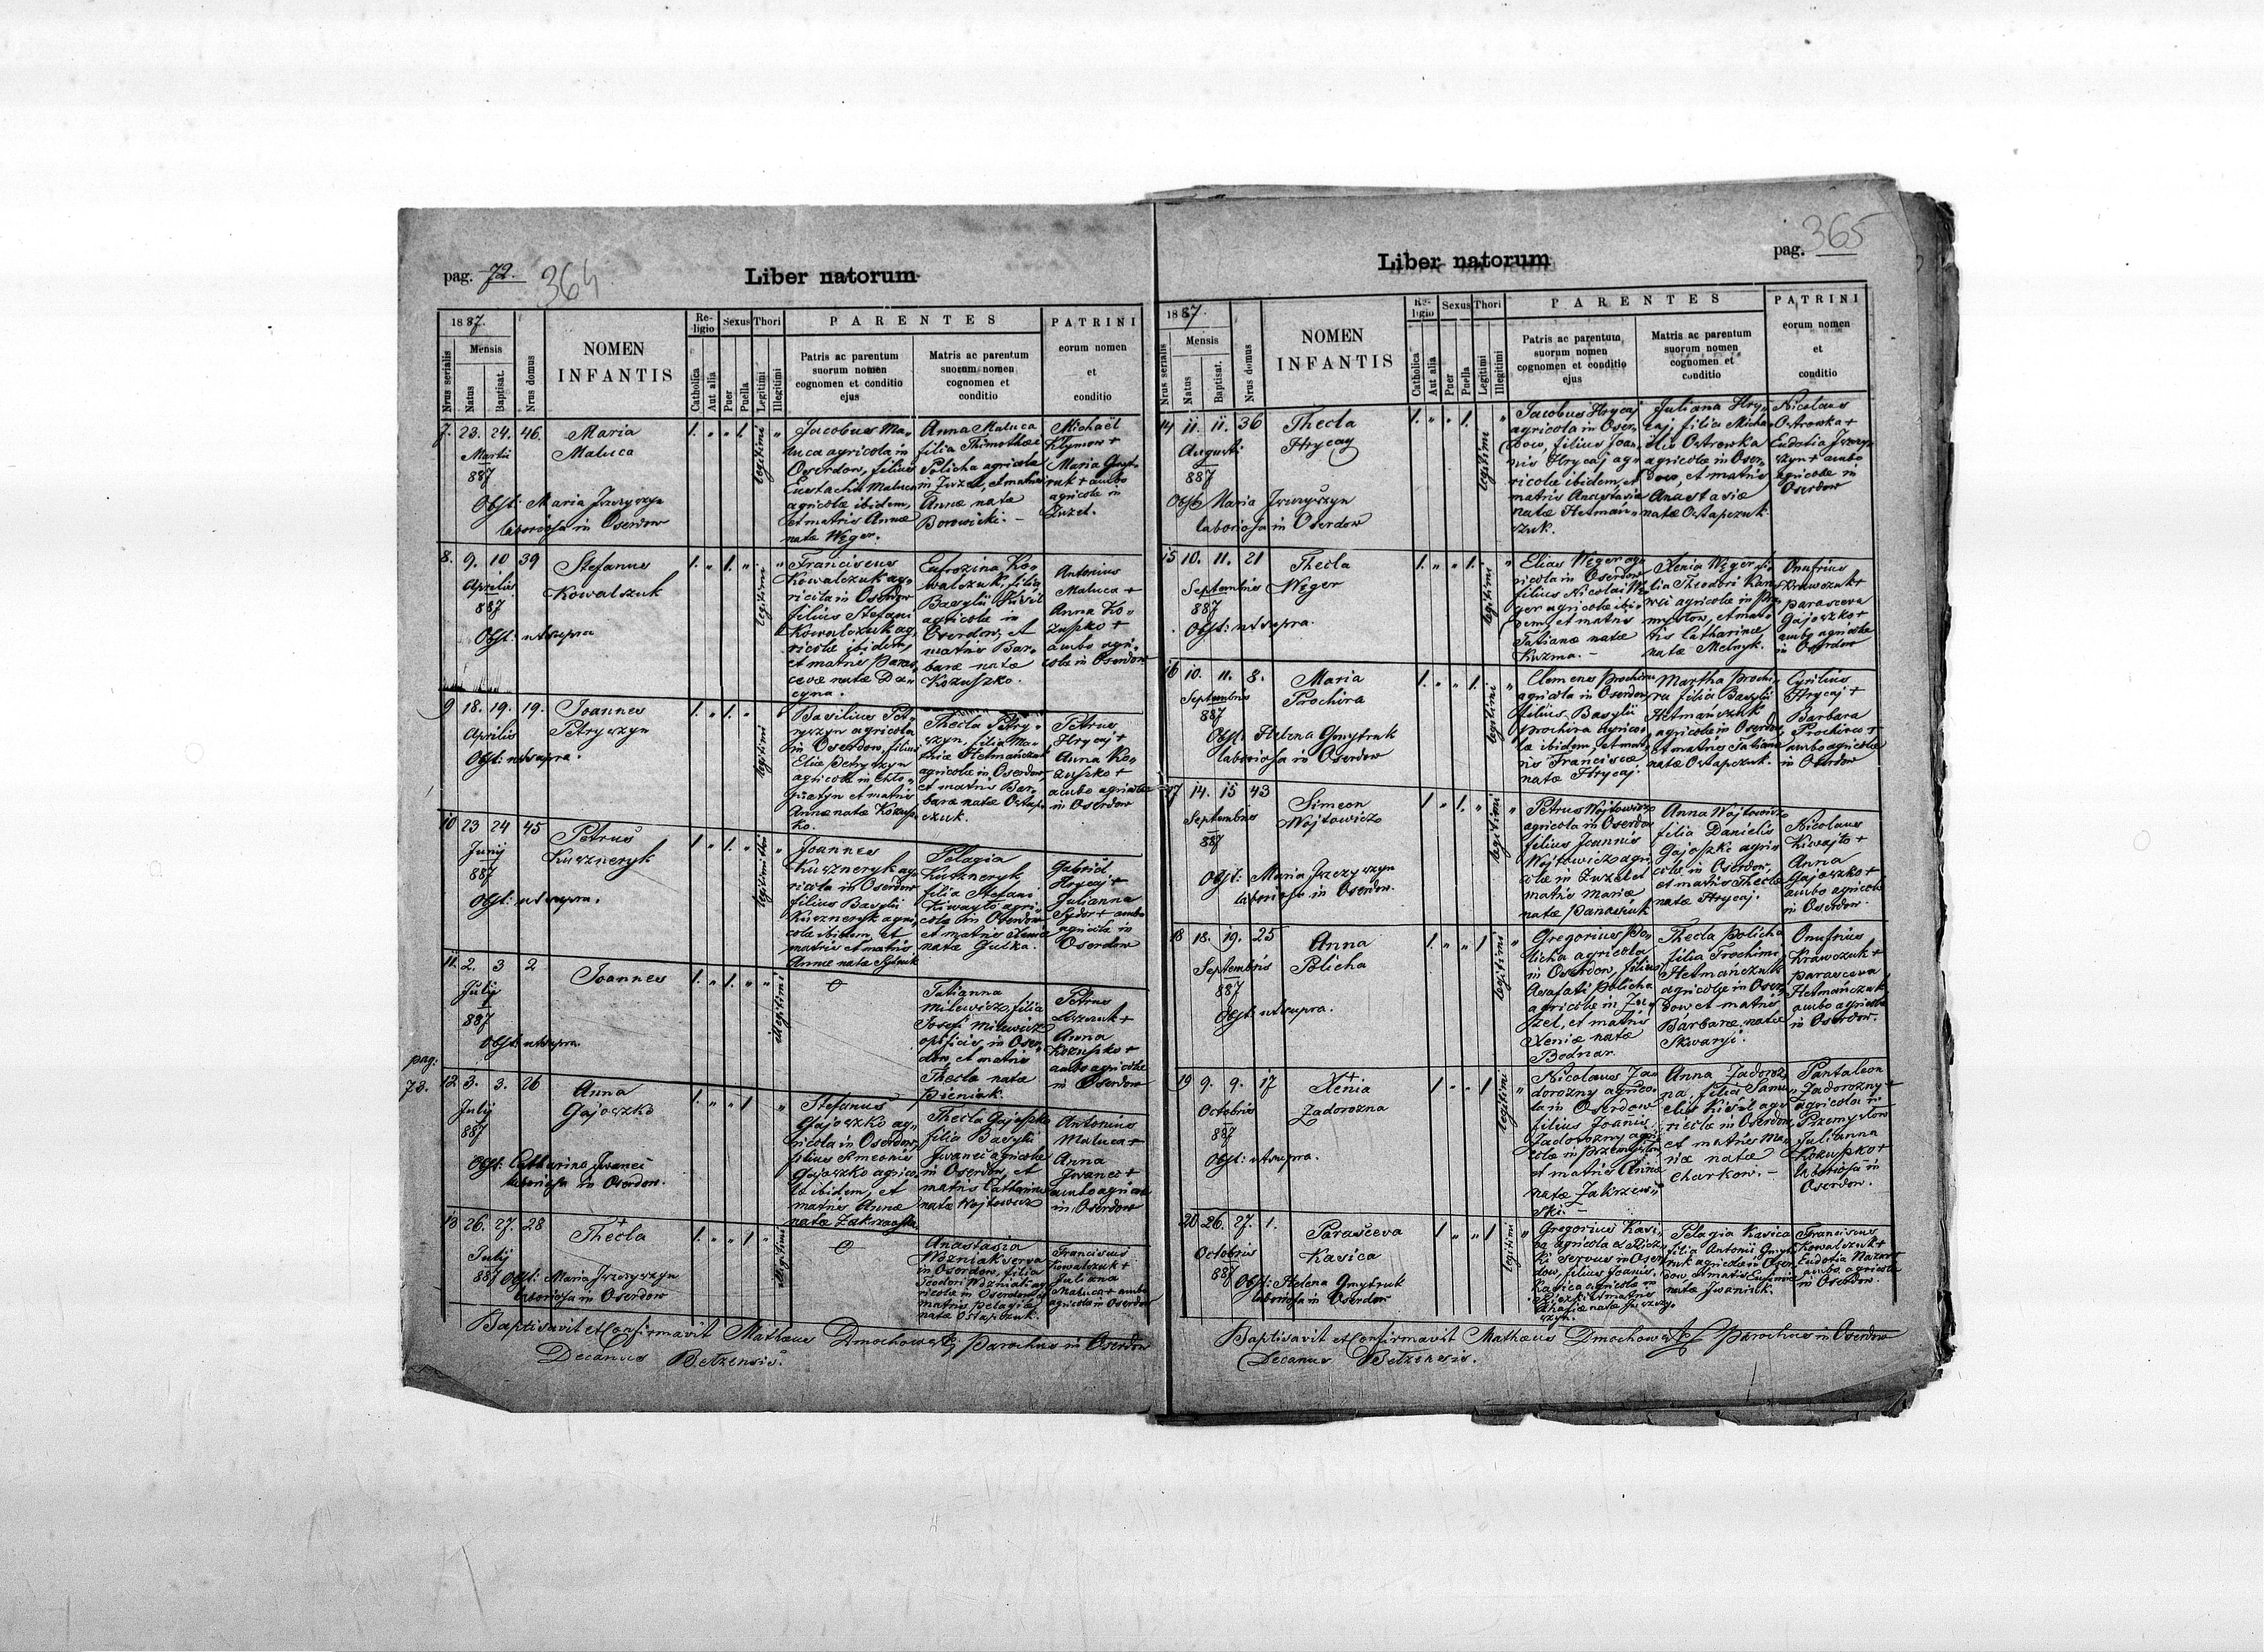 pag. 72.
364
Liber natorum
1887.
Nrus serialis
Mensis
Natus
Baptisat.
Nrus domus
NOMEN
INFANTIS
Re-
ligio
Catholica
Aut alia
Sexus
Puer
Puella
Thori
Legitimi
Illegitimi
PARENTES
Patris ac parentum
suorum nomen
cognomen et conditio
ejus
Matris ac parentum
suorum nomen
cognomen et
conditio
PATRINI
eorum nomen
et
conditio
7. 23. 24. 46.
Martii
887
Maria
Maluca
Obst: Maria Jrzyszyn
laboriosa in Oserdow
1. „ „ 1. legitimi „
Jacobus Ma-
luca agricola in
Oserdow, filius
Eustachii Maluca
agricolæ ibidem,
et matris Annæ
natæ Węger.
Anna Maluca
filia Thimothæi
Policha agricolæ
in Żużel, et matris
Annæ natæ
Borowicki. –
Michaël
Klymow +
Maria Gmyt-
ruk + ambo
agricolæ in
Żużel.
8. 9. 10 39
Aprilis
887
Stefanus
Kowalczuk
Obst: ut supra
1. „ 1. „ legitimi „
Franciscus
Kowalczuk ag-
ricola in Oserdow
filius Stefani
Kowalczuk ag-
ricolæ ibidem,
et matris Paras-
cevæ natæ
Eufrozina Ko-
walczuk, filia
Basylii Kisil
agricolæ in
Oserdow, et
matris Bar-
baræ natæ
Kozuszko.
Antonius
Maluca +
Anna Ko-
zuszko +
ambo agri-
colæ in Oserdow
9 18. 19. 19.
Aprilis
Joannes
Petryszyn
Obst: ut supra.
1. „ 1. „ legitimi
Basilius Pet-
ryszyn agricola
in Oserdow, filius
Eliæ Petryszyn
agricolæ in
et matris
Annæ natæ Kozusz-
ko.
Thecla Petry-
szyn, filia
Hetmańczuk
agricolæ in Oserdow,
et matris Bar-
baræ natæ Ostap-
czuk.
Petrus
Hrycaj +
Anna Ko-
zuszko +
ambo agricolæ
in Oserdow
10 23 24 45
Junij
887
Petrus
Kuszneryk
Obst: ut supra.
1. „ 1. „ legitimi „
Joannes
Kuszneryk ag-
ricola in Oserdow
filius Basylii
Kuszneryk agri-
colæ ibidem, et
matris et matris
Annæ natæ
Pelagia
Kuszneryk
filia Stefani
Kiwajło agri-
cola in Oserdow
et matris Xeniæ
natæ
Gabriel
Hrycaj +
Julianna
Sydor + ambo
agricolæ in
Oserdow
11 2. 3 2
Julij
887
Joannes
Obst: ut supra.
1. „ 1. „ „ illegitimi
Tatianna
Milewicz, filia
Josefi Milewicz
opificis in Oser-
dow, et matris
Theclæ natæ
Pieniak.
Petrus
+
Anna
Kozuszko +
ambo agricolæ
in Oserdow
pag:
73.
12 3. 3. 26
Julij
887
Anna
Gajoszko
Obst: Catharina Jwanec
laboriosa in Oserdow.
1. „ „ 1 „
Stefanus
Gajoszko ag-
ricola in Oserdow,
filius Simeonis
Gajoszko agrico-
læ ibidem, et
matris Annæ
natæ
Thecla Gajoszko
filia Basylii
Jwanec agricolæ
in Oserdow, et
matris Catharinæ
natæ Wojtowicz
Antonius
Maluca +
Anna
Jwanec +
ambo agricolæ
in Oserdow
13 26. 27. 28
Julij
887
+
Thecla
Obst: Maria Jrzyszyn
laboriosa in Oserdow
1. „ „ 1 „ illegitimi
Anastasia
Wozniak serva
in Oserdow, filia
Teodori Wozniak ag-
ricola in Oserdow et
matris Pelagiæ
natæ Ostapczuk.
Franciscus
Kowalczuk +
Juliana
Maluca + ambo
agricolæ in Oserdow
Baptisavit et Confirmavit Mathæus Dmochowski Parochus in Oserdow
Decanus Bełzensis.
pag. 365
Liber natorum
1887.
Nrus serialis
Mensis
Natus
Baptisat.
Nrus domus
NOMEN
INFANTIS
Re-
ligio
Catholica
Aut alia
Sexus
Puer
Puella
Thori
Legitimi
Illegitimi
PARENTES
Patris ac parentum
suorum nomen
cognomen et conditio
ejus
Matris ac parentum
suorum nomen
cognomen et
conditio
PATRINI
eorum nomen
et
conditio
14 11. 11. 36
Augusti
887
Thecla
Hrycay
Obst: Maria Jrzyszyn
laboriosa in Oserdow
1. „ „ 1. legitimi „
Jacobus Hrycaj
agricola in Oser-
dow, filius Joan-
nis Hrycaj ag-
ricolæ ibidem, et
matris Anastasiæ
natæ Hetmań-
czuk.
Juliana Hry-
caj, filia Micha-
elis Ostrowka
agricolæ in Oser-
dow, et matris
Anastasiæ
natæ Ostapczuk.
Nicolaus
Ostrowka +
Eudotia
ambo
agricolæ in
Oserdow
15 10. 11. 21
Septembris
887
Thecla
Węger
Obst: ut supra.
1. „ „ 1. legitimi „
Elias Węger ag-
ricola in Oserdow
filius Nicolai Wę-
ger agricolæ ibi-
dem, et matris
Tatianæ natæ
Kuzma. –
Xenia Węger fi-
lia Theodori
agricolæ in
et mat-
ris Catharinæ
natæ Melnyk.
Onufrius
Krawczuk +
Parasceva
Gajoszko +
ambo agricolæ
in Oserdow
16 10. 11. 8.
Septembris
887
Maria
Prochira
Obst. Helena Gmytruk
laboriosa in Oserdow
1. „ „ 1. legitimi „
Clemens Prochira
agricola in Oserdow,
filius Basylii
Prochira agrico-
læ ibidem, et mat-
ris Franciscæ
natæ Hrycaj.
Martha Prochi-
ra filia Basylii
Hetmańczuk
agricolæ in Oserdow,
et matris Tatianæ
natæ Ostapczuk.
Cyrilius
Hrycaj +
Barbara
Prochira +
ambo agricolæ
in Oserdow
17 14. 15 43
Septembris
887
Simeon
Wojtowicz
Obst: Maria Jrzyszyn
laboriosa in Oserdow.
1 „ 1. „ legitimi „
Petrus Wojtowicz
agricola in Oserdow
filius Joannis
Wojtowicz agri-
colæ in Żużel et
matris Mariæ
natæ Panasiuk
Anna Wojtowicz
filia Danielis
Gajoszko agri-
colæ in Oserdow,
et matris Theclæ
natæ Hrycaj.
Nicolaus
Kiwajło +
Anna
Gajoszko +
ambo agricolæ
in Oserdow.
18 18. 19. 25
Septembris
887
Anna
Policha
Obst: ut supra.
1. „ „ 1 legitimi „
Gregorius Po-
licha agricola
in Oserdow, filius
Asafati Policha
agricolæ in Żu-
żel, et matris
Xeniæ natæ
Bodnar.
Thecla Policha
filia Trochimi
Hetmańczuk
agricolæ in Oser-
dow, et matris
Barbaræ natæ
Skwaryj.
Onufrius
Krawczuk +
Parasceva
Hetmańczuk
ambo agricolæ
in Oserdow.
19 9. 9. 17
Octobris
887
+
Xenia
Zadorozna
Obst: ut supra.
1 „ „ 1 legitimi „
Nicolaus Za-
dorozny agrico-
la in Oserdow
filius Joanis
Zadorozny agri-
colæ in Przemysłow
et matris Annæ
natæ Zakrzew-
ski. –
Anna Zadoroz-
na, filia Samu-
elis Kisil ag-
ricolæ in Oserdow
et matris Ma-
riæ natæ
Charkow. –
Pantaleon
Zadorozny +
agricola in
Przemysłow
Julianna
Kozuszko +
laboriosa in
Oserdow.
20 26. 27. 1.
Octobris
887
Parasceva
Kasica
Obst: Helena Gmytruk
laboriosa in Oserdow
1 „ „ 1 legitimi „
Gregorius Kasi-
ca agricola
servus in Oser-
dow, filius Joanis
Kasica agricola in
et matris
natæ
Pelagia Kasica
filia Antonii Gmyt-
ruk agricolæ in Oser-
dow, et matris Eufimiæ
natæ Jwaniuk.
Franciscus
Kowalczuk +
Eudotia Nazar
ambo agricolæ
in Oserdow.
Baptisavit et Confirmavit Mathæus Dmochowski Parochus in Oserdow
Decanus Bełzensis.